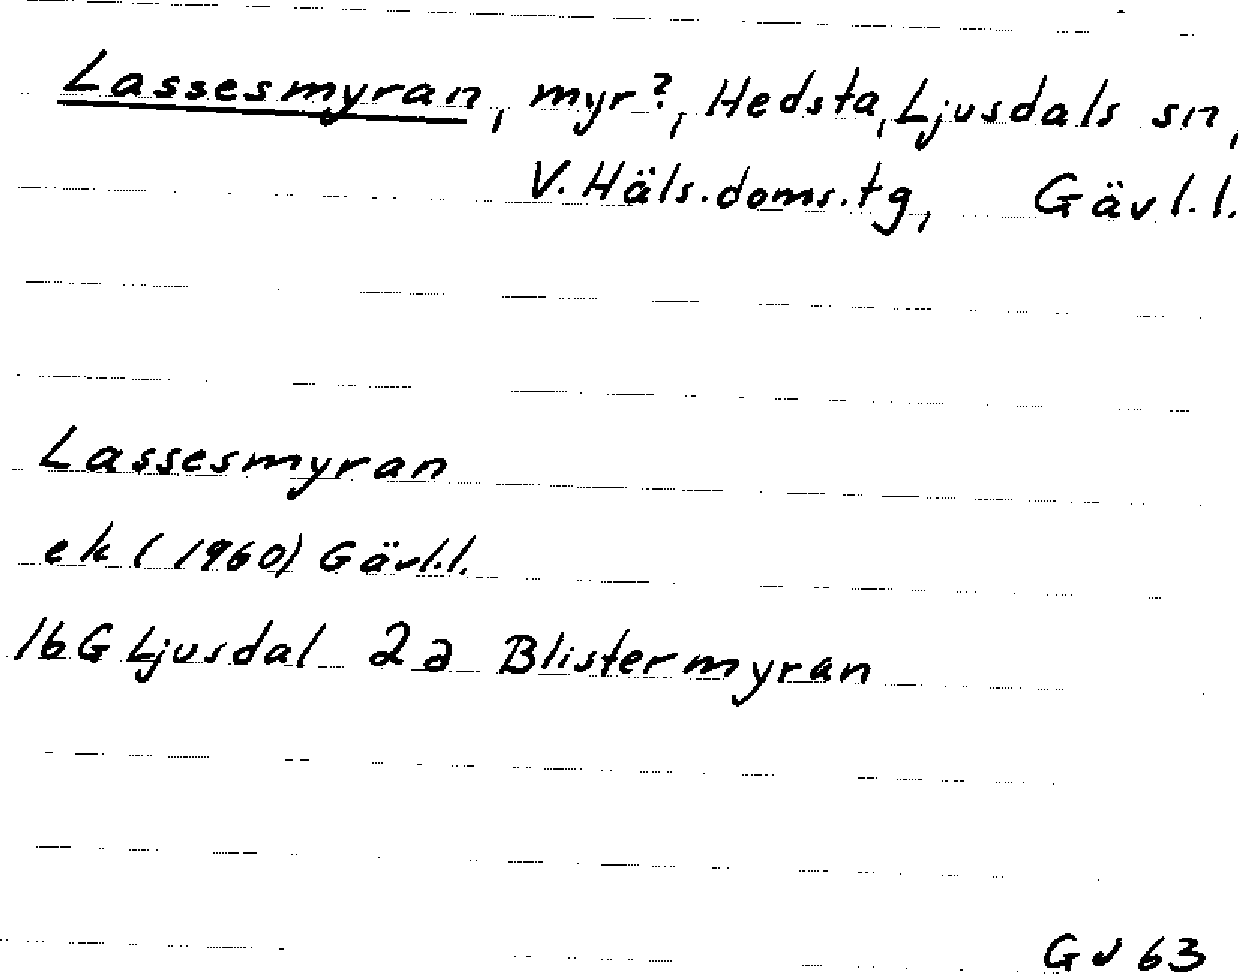 Lassesmyran, myr?, Hedsta, Ljusdals sn,
V. Häls. doms. tg, Gävl. l.
Lassesmyran
ek (1960) Gävl. l.
16G Ljusdal 2a Blistermyran
GJ 63